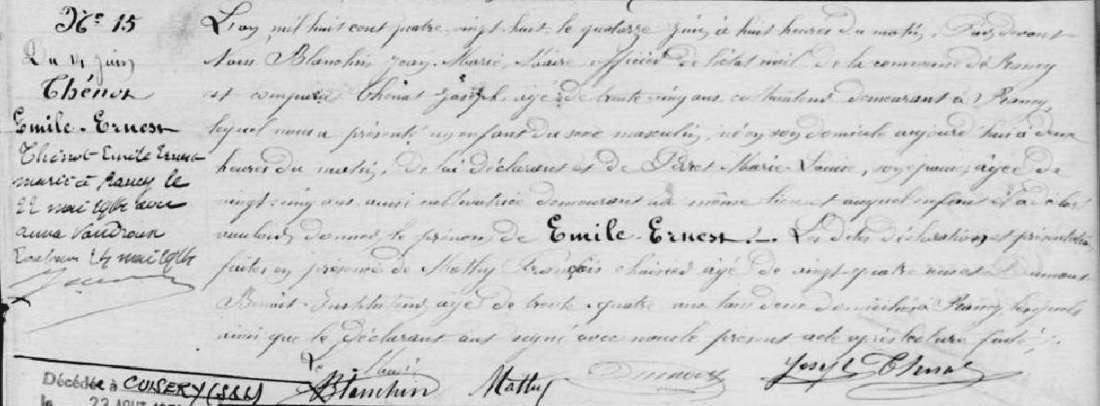 N° 15
Du 14 juin
Thénot
Emile-Ernest
Thénot Emile Ernest
marié à Rancy le
22 mai 19 avec
anna Vautroux
24 mai 19
L'an mil huit cent quatre-vingt huit le quatorze juin à huit heures du matin. Par devant
Nous Blanchin Jean-Marie, Maire officier de l'état civil de la commune de Rancy
est comparu Thénot Joseph âgé de trente cinq ans cultivateur demeurant à Rancy
lequel nous a présenté un enfant du sexe masculin, né en son domicile aujourd'hui à deux
heures du matin, de lui déclarant et de Perret Marie-Louise, son épouse, âgée de
vingt-cinq ans aussi cultivatrice demeurant au même lieu et auquel enfant il a déclaré
vouloir donner le prénom de Emile-Ernest. Les dites déclaration et présentation
faites en présence de Mathy François âgé de vingt-quatre ans et
Benoit Instituteur, âgé de trente-quatre ans tous deux domiciliés à Rancy lesquels
ainsi que le déclarant ont signé avec nous le présent acte après lecture faite.
Le Maire
Blanchin Mathy Joseph Thenot
Décédé à CUISERY (S&L)
le 23 AOUT